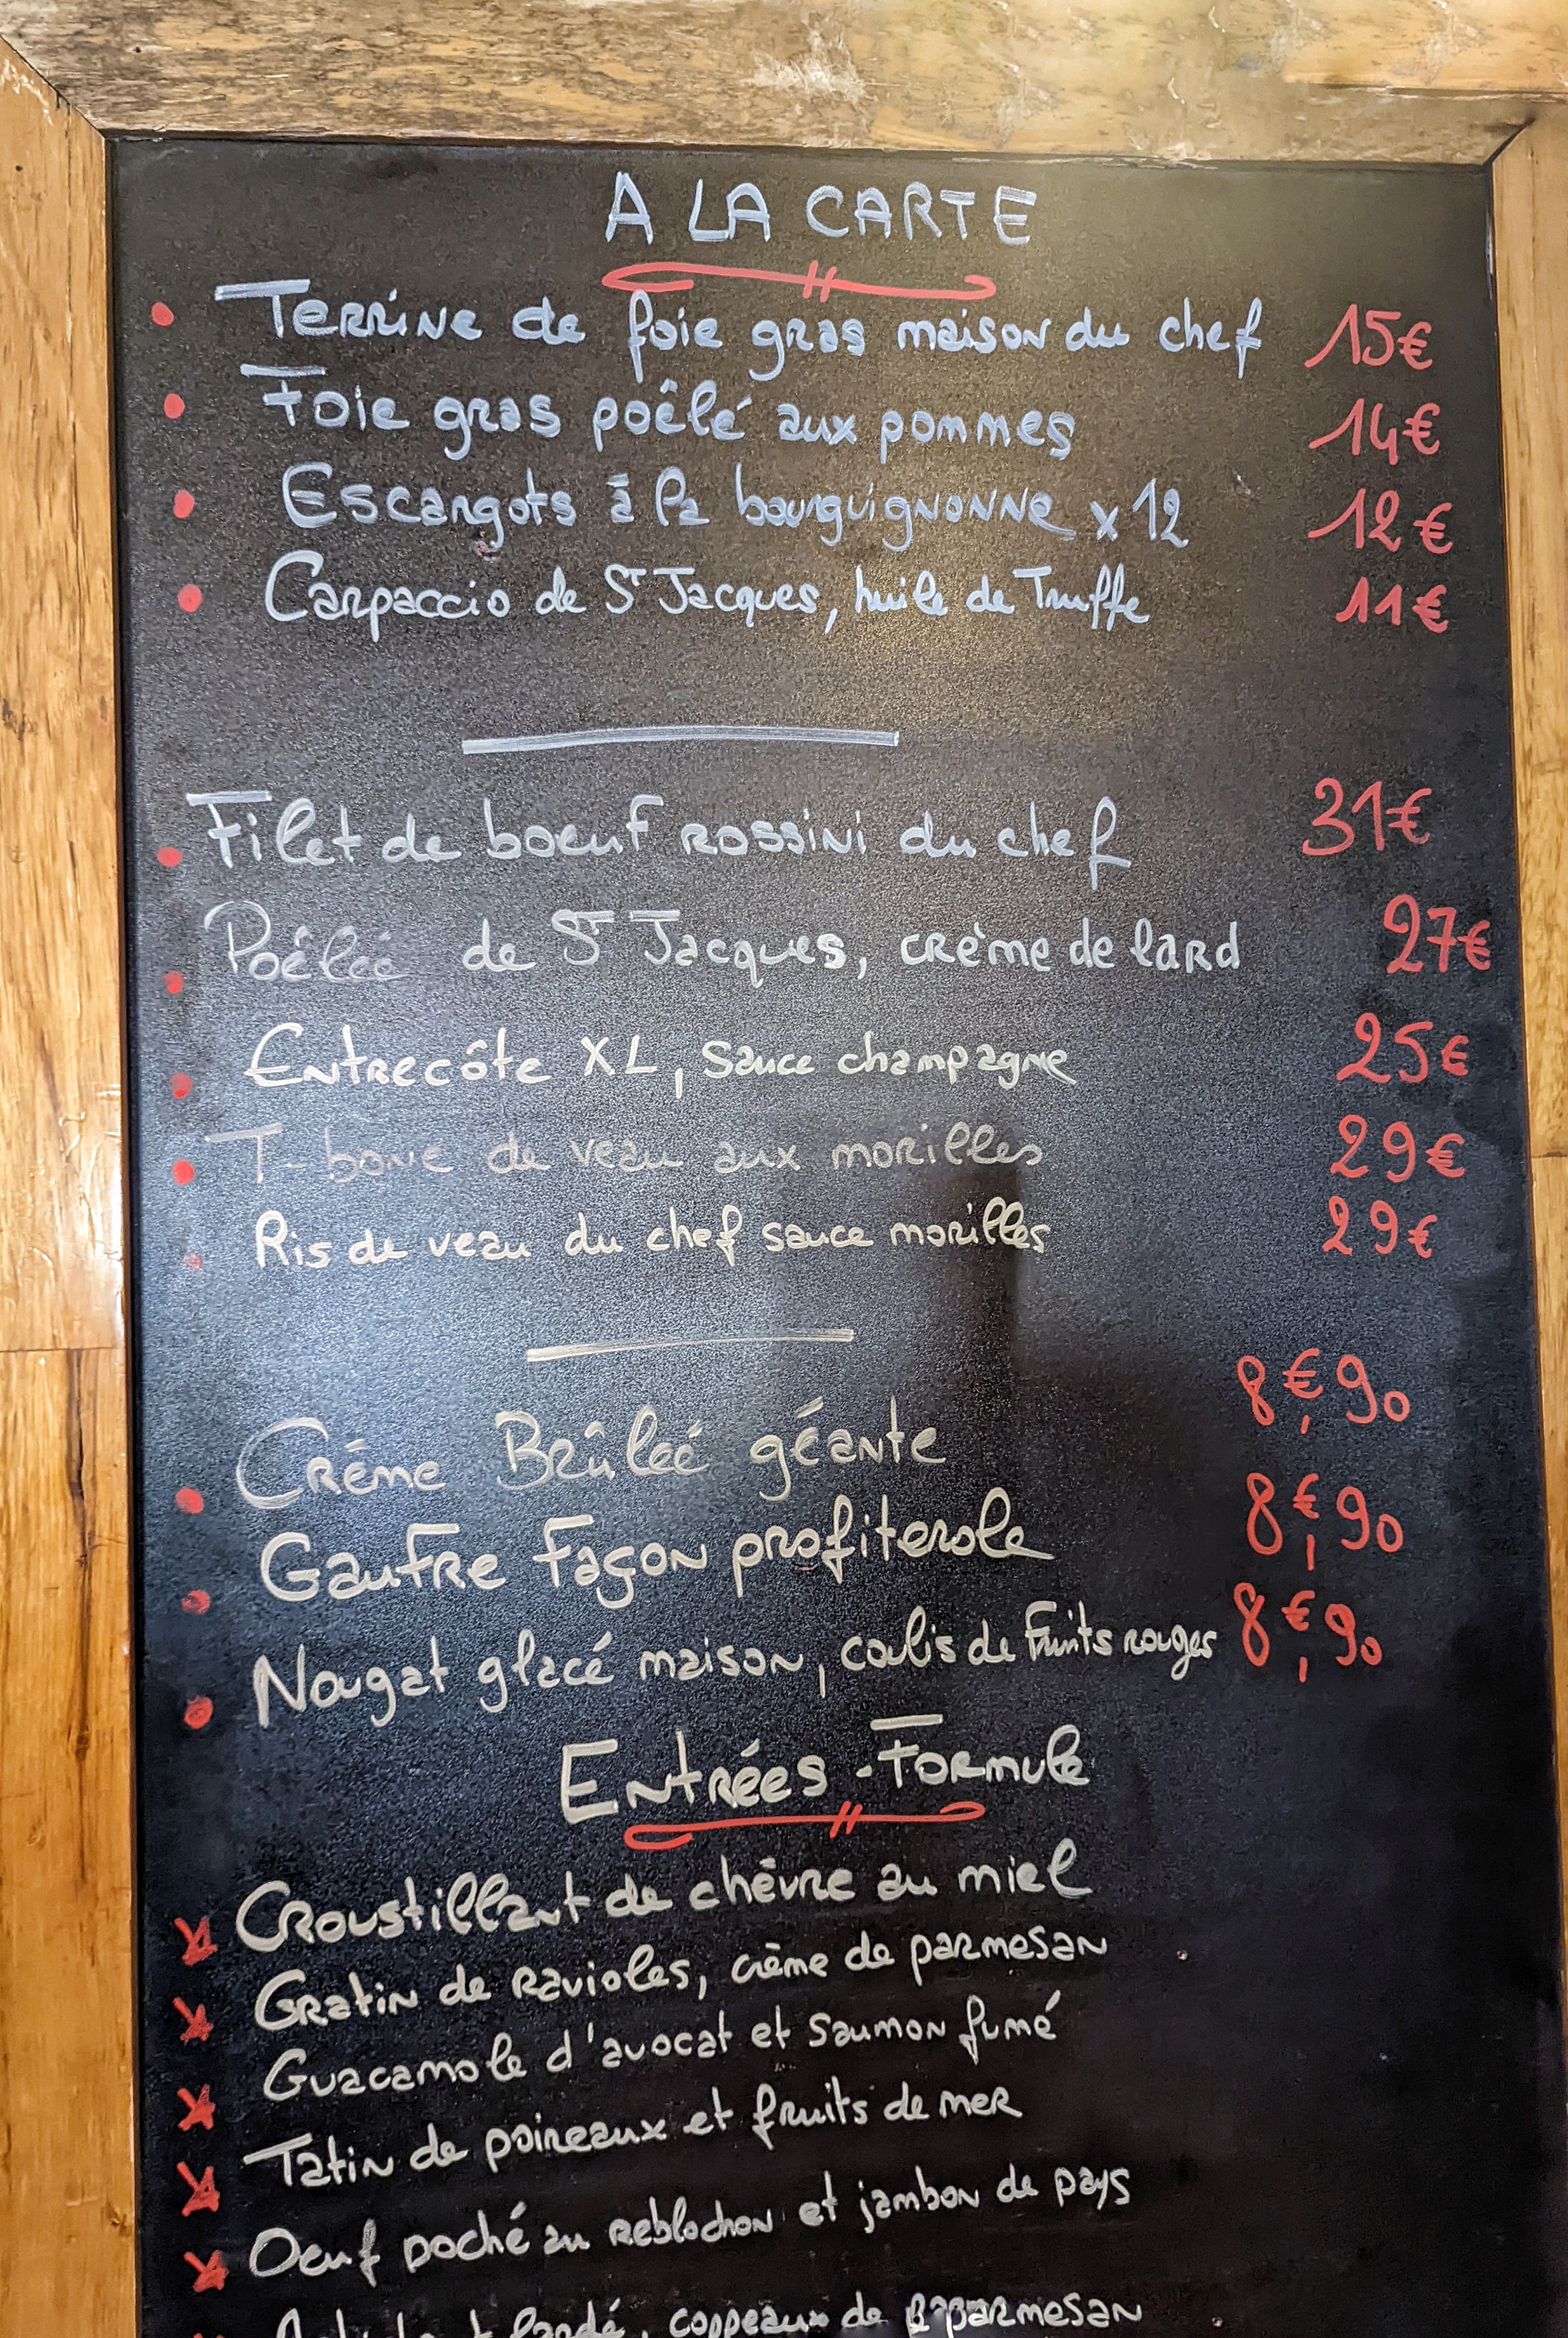 A LA CARTE
Terrine de foie gras maison du chef 15€
Foie gras poêlé aux pommes 14€
Escargots à la bourguignonne x12 12€
Carpaccio de St Jacques, huile de Truffe 11€
Filet de boeuf rossini du chef 31€
Poêlée de St Jacques, crème de lard 27€
Entrecôte XL, sauce champagne 25€
T-bone de veau aux morilles 29€
Ris de veau du chef sauce morilles 29€
Crème Brûlée géante 8€,90
Gaufre Façon profiterole 8€,90
Nougat glacé maison, coulis de Fruits rouges 8€,90
Entrées-Formule
Croustillant de chèvre au miel
Gratin de ravioles, crème de parmesan
Guacamole d'avocat et saumon fumé
Tatin de poireaux et fruits de mer
Oeuf poché au reblochon et jambon de pays
lardé, coppeaux de parmesan